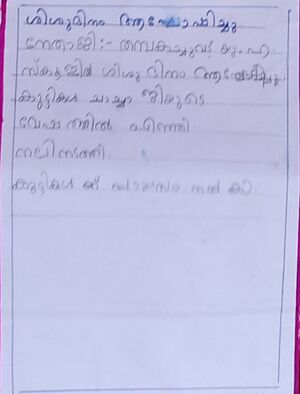 ശിശുദിനം ആഘോഷിച്ചു
നേതാജി :- തമ്പകച്ചുവട് യു.പി.
സ്കൂളിൽ ശിശുദിനം ആഘോഷിച്ചു.
കുട്ടികൾ ചാച്ചാജിയുടെ
വേഷത്തിൽ
റാലിനടത്തി
കുട്ടികൾ ക്ക് പായസം നൽ കി